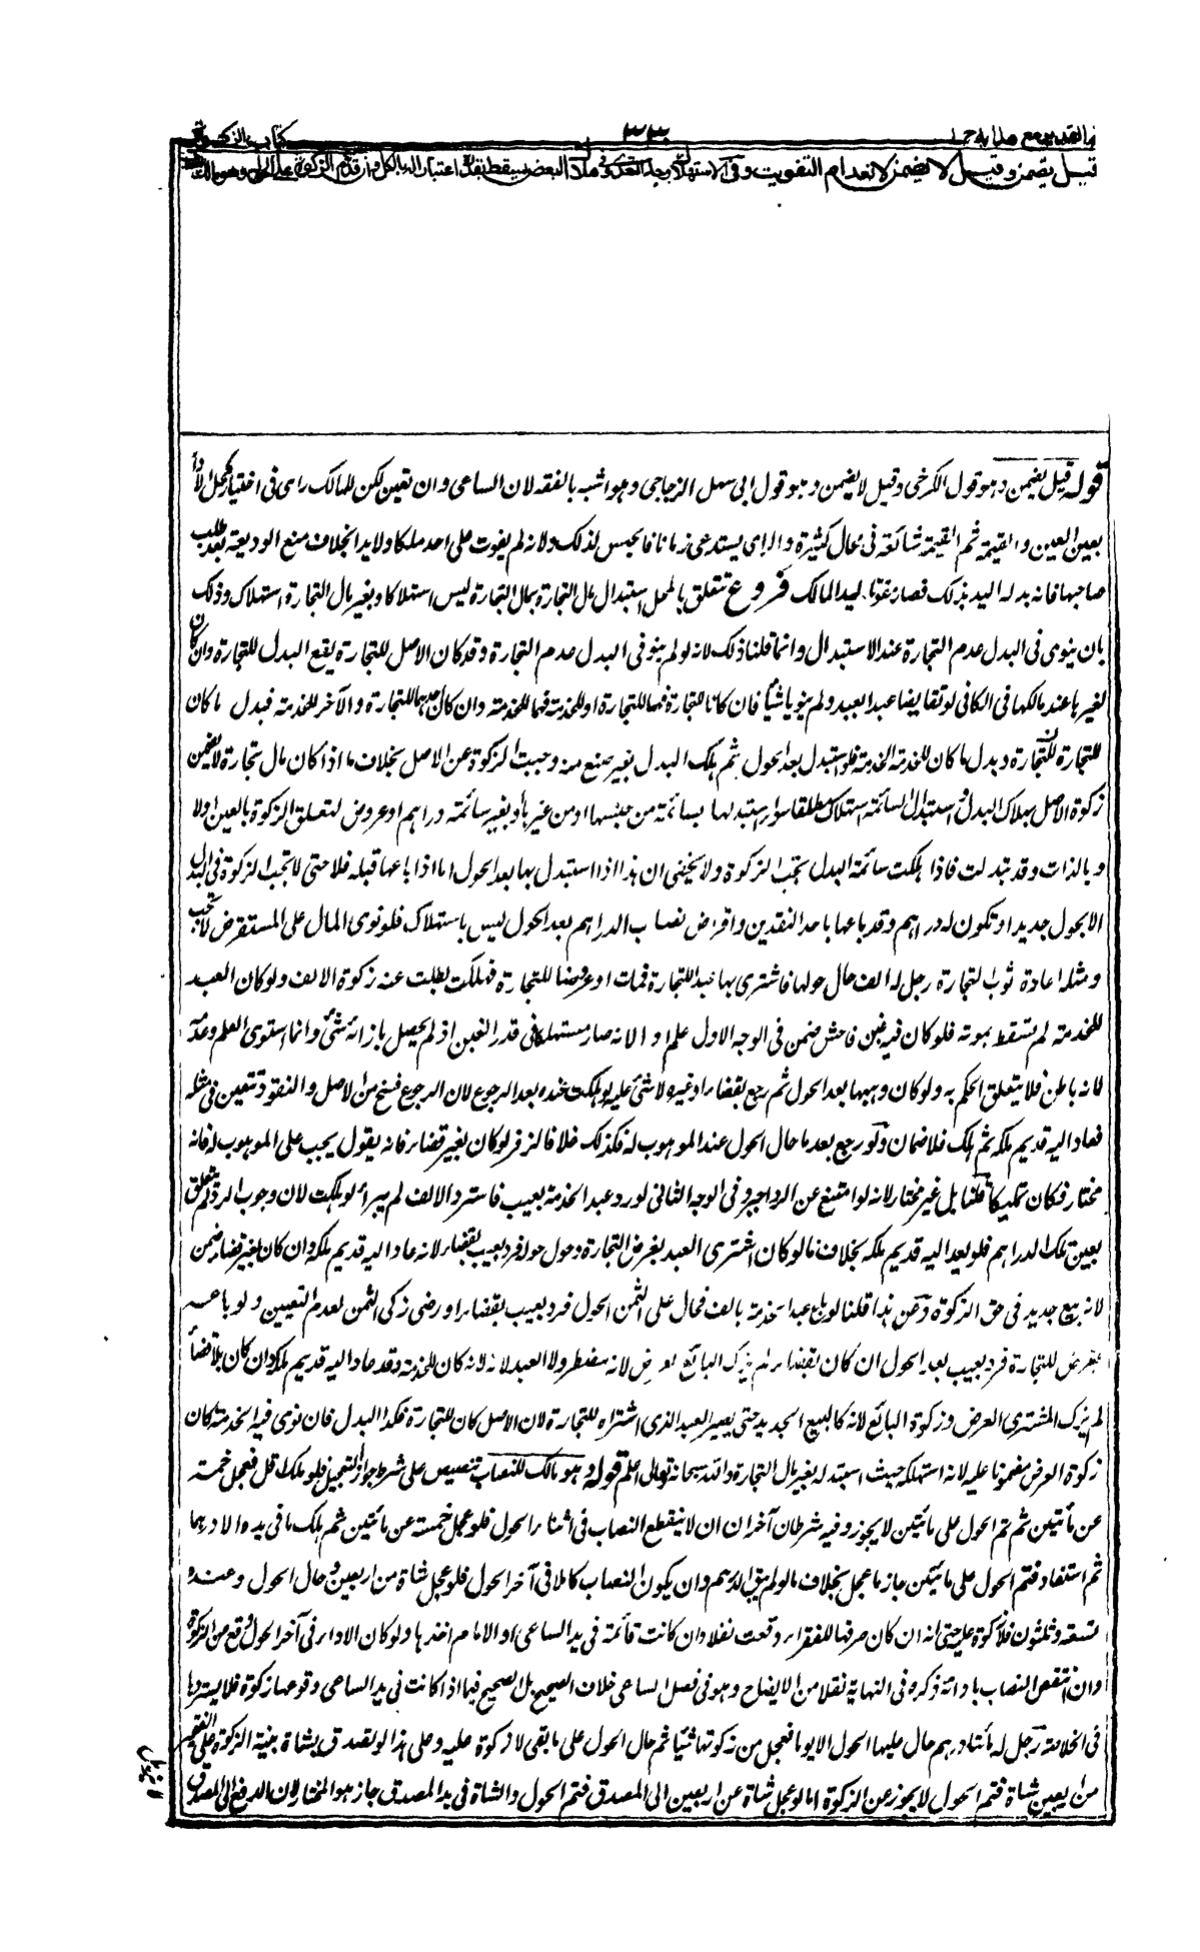 فتح القدير مع هدايه ج ١ ٣٣٠ كتاب الزكوة
قيل يضمن وقيل لا يضمن لانعدام التفويت وفى الاستهلاك وجد التعدى وفى هلاك البعض يسقط بقدره اعتبارا له بالكل وان قدم الزكوة على الحول وهو مالك
قوله قيل يضمن وهو قول الكرخى وقيل لا يضمن وهو قول ابى سهل الزجاجى وهو اشبه بالفقه لان الساعى وان تعين لكن للمالك راى فى اختيار محل الاداء
بعين العين والقيمة ثم القيمة شائعة فى محال كثيرة والراى يستدعى زمانا فالحبس لذلك ولانه لم يفوت على احد ملكا ولا يدا بخلاف منع الوديعة بعد طلب
صاحبها فانه بدله اليد بذلك فصار مفوتا ليد المالك فروع تتعلق بالمحل استبدال مال التجارة بمال التجارة ليس استهلاكا وبغير مال التجارة استهلاك وذلك
بان ينوى فى البدل عدم التجارة عند الاستبدال وانما قلنا ذلك لانه لو لم ينو فى البدل عدم التجارة وقد كان الاصل للتجارة يقع البدل للتجارة وان كان
لغيرها عند مالكها فى الكافى لو تقايضا عبدا بعبد ولم ينويا شيأ فان كانا للتجارة فهما للتجارة او للخدمة فهما للخدمة وان كان احدهما للتجارة والآخر للخدمة فبدل ما كان
للتجارة للتجارة وبدل ما كان للخدمة للخدمة فلو استبدل بعد الحول ثم هلك البدل بغير صنع منه وجبت الزكوة عن الاصل بخلاف ما اذا كان مال تجارة لا يضمن
زكوة الاصل بهلاك البدل واستبدال السائمة استهلاك مطلقا سواء استبدلها بسائمة من جنسها او من غيره او بغير سائمة دراهم او عروض لتعلق الزكوة بالعين اولا
و بالذات وقد تبدلت فاذا هلكت سائمة البدل تجب الزكوة ولا يخفى ان هذا اذا استبدل بها بعد الحول اما اذا باعها قبله فلا حتى لا تجب الزكوة فى البدل
الا بحول جديد او تكون له دراهم وقد باعها باحد النقدين واقراض نصاب الدراهم بعد الحول ليس باستهلاك فلو توى المال على المستقرض لا تجب
ومثله اعادة ثوب التجارة رجل له الف حال حولها فاشترى بها عبدا للتجارة فمات او عروضا للتجارة فهلكت بطلت عنه زكوة الالف ولو كان العبد
للخدمة لم تسقط بموته فلو كان فيه غبن فاحش ضمن فى الوجه الاول علم او لا لانه صار مستهلكا فى قدر الغبن اذ لم يحصل بازائه شئ وانما استوى العلم وعدمه
لانه باطن فلا يتعلق الحكم به ولو كان وهبها بعد الحول ثم رجع بقضاء او غيره لا شئ عليه لو هلكت عنده بعد الرجوع لان الرجوع فسخ من الاصل والنقود تتعين فى مثله
فعاد اليه قديم ملكه ثم هلك فلا ضمان ولو رجع بعد ما حال الحول عند الموهوب له فكذلك خلافا لزفر لو كان بغير قضاء فانه يقول يجب على الموهوب له فانه
مختار فكان تمليكا قلنا بل غير مختار لانه لو امتنع عن الرد اجبر وفى الوجه الثانى لو رد عبد الخدمة بعيب فاسترد الالف لم يبرأ لو هلكت لان وجوب الرد لم يتعلق
بعين تلك الدراهم فلم يعد اليه قديم ملكه بخلاف ما لو كان اشترى العبد بعرض التجارة وحول حوله فرد بعيب بقضاء لانه عاد اليه قديم ملكه وان كان بغير قضاء ضمن
لانه بيع جديد فى حق الزكوة وعن هذا قلنا لو باع عبد الخدمة بالف فحال على الثمن الحول فرد بعيب بقضاء او رضى زكى الثمن لعدم التعيين ولو باعه
بعرض للتجارة فرد بعيب بعد الحول ان كان بقضاء لم يزك البائع العرض لانه مضطر ولا العبد لانه كان للخدمة وقد عاد اليه قديم ملكه وان كان بلا قضاء
لم يزك المشترى العرض وزكوة البائع لانه كالبيع الجديد حتى يصير العبد الذى اشتراه للتجارة لان الاصل كان للتجارة فكذا البدل فان نوى فيه الخدمة كان
زكوة العرض مضمونا عليه لانه استهلكه حيث استبدله بغير مال التجارة والله سبحانه وتعالى اعلم قوله وهو مالك للنصاب تنصيص على شرط جواز التعجيل فلو ملك اقل فعجل خمسة
عن مأتين ثم تم الحول على مأتين لا يجوز وفيه شرطان آخران ان لا ينقطع النصاب فى اثناء الحول فلو عجل خمسة عن مأتين ثم هلك ما فى يده الا درهما
ثم استفاد فتم الحول على مأتين جاز ما عجل بخلاف ما لو لم يبق الدرهم وان يكون النصاب كاملا فى آخر الحول فلو عجل شاة من اربعين وحال الحول وعنده
تسعة وثلثون فلا زكوة عليه حتى انه ان كان صرفها للفقراء وقعت نفلا وان كانت قائمة فى يد الساعى او الامام اخذها ولو كان الاداء فى آخر الحول وقع عن الزكوة
وان انتقص النصاب بادائه ذكره فى النهاية نقلا من الايضاح وهو فى فصل الساعى خلاف الصحيح بل الصحيح فيما اذا كانت فى يد الساعى وقوعها زكوة فلا يستردها
فى الخلاصة رجل له مأتا درهم حال عليها الحول الا يوما فعجل من زكوتها شيأ ثم حال الحول على ما بقى لا زكوة عليه وعلى هذا لو تصدق بشاة بنية الزكوة على الفقير
من اربعين شاة فتم الحول لا يجوز عن الزكوة اما لو عجل شاة عن اربعين الى المصدق فتم الحول والشاة فى يد المصدق جاز هو المختار لان الدفع الى المصدق